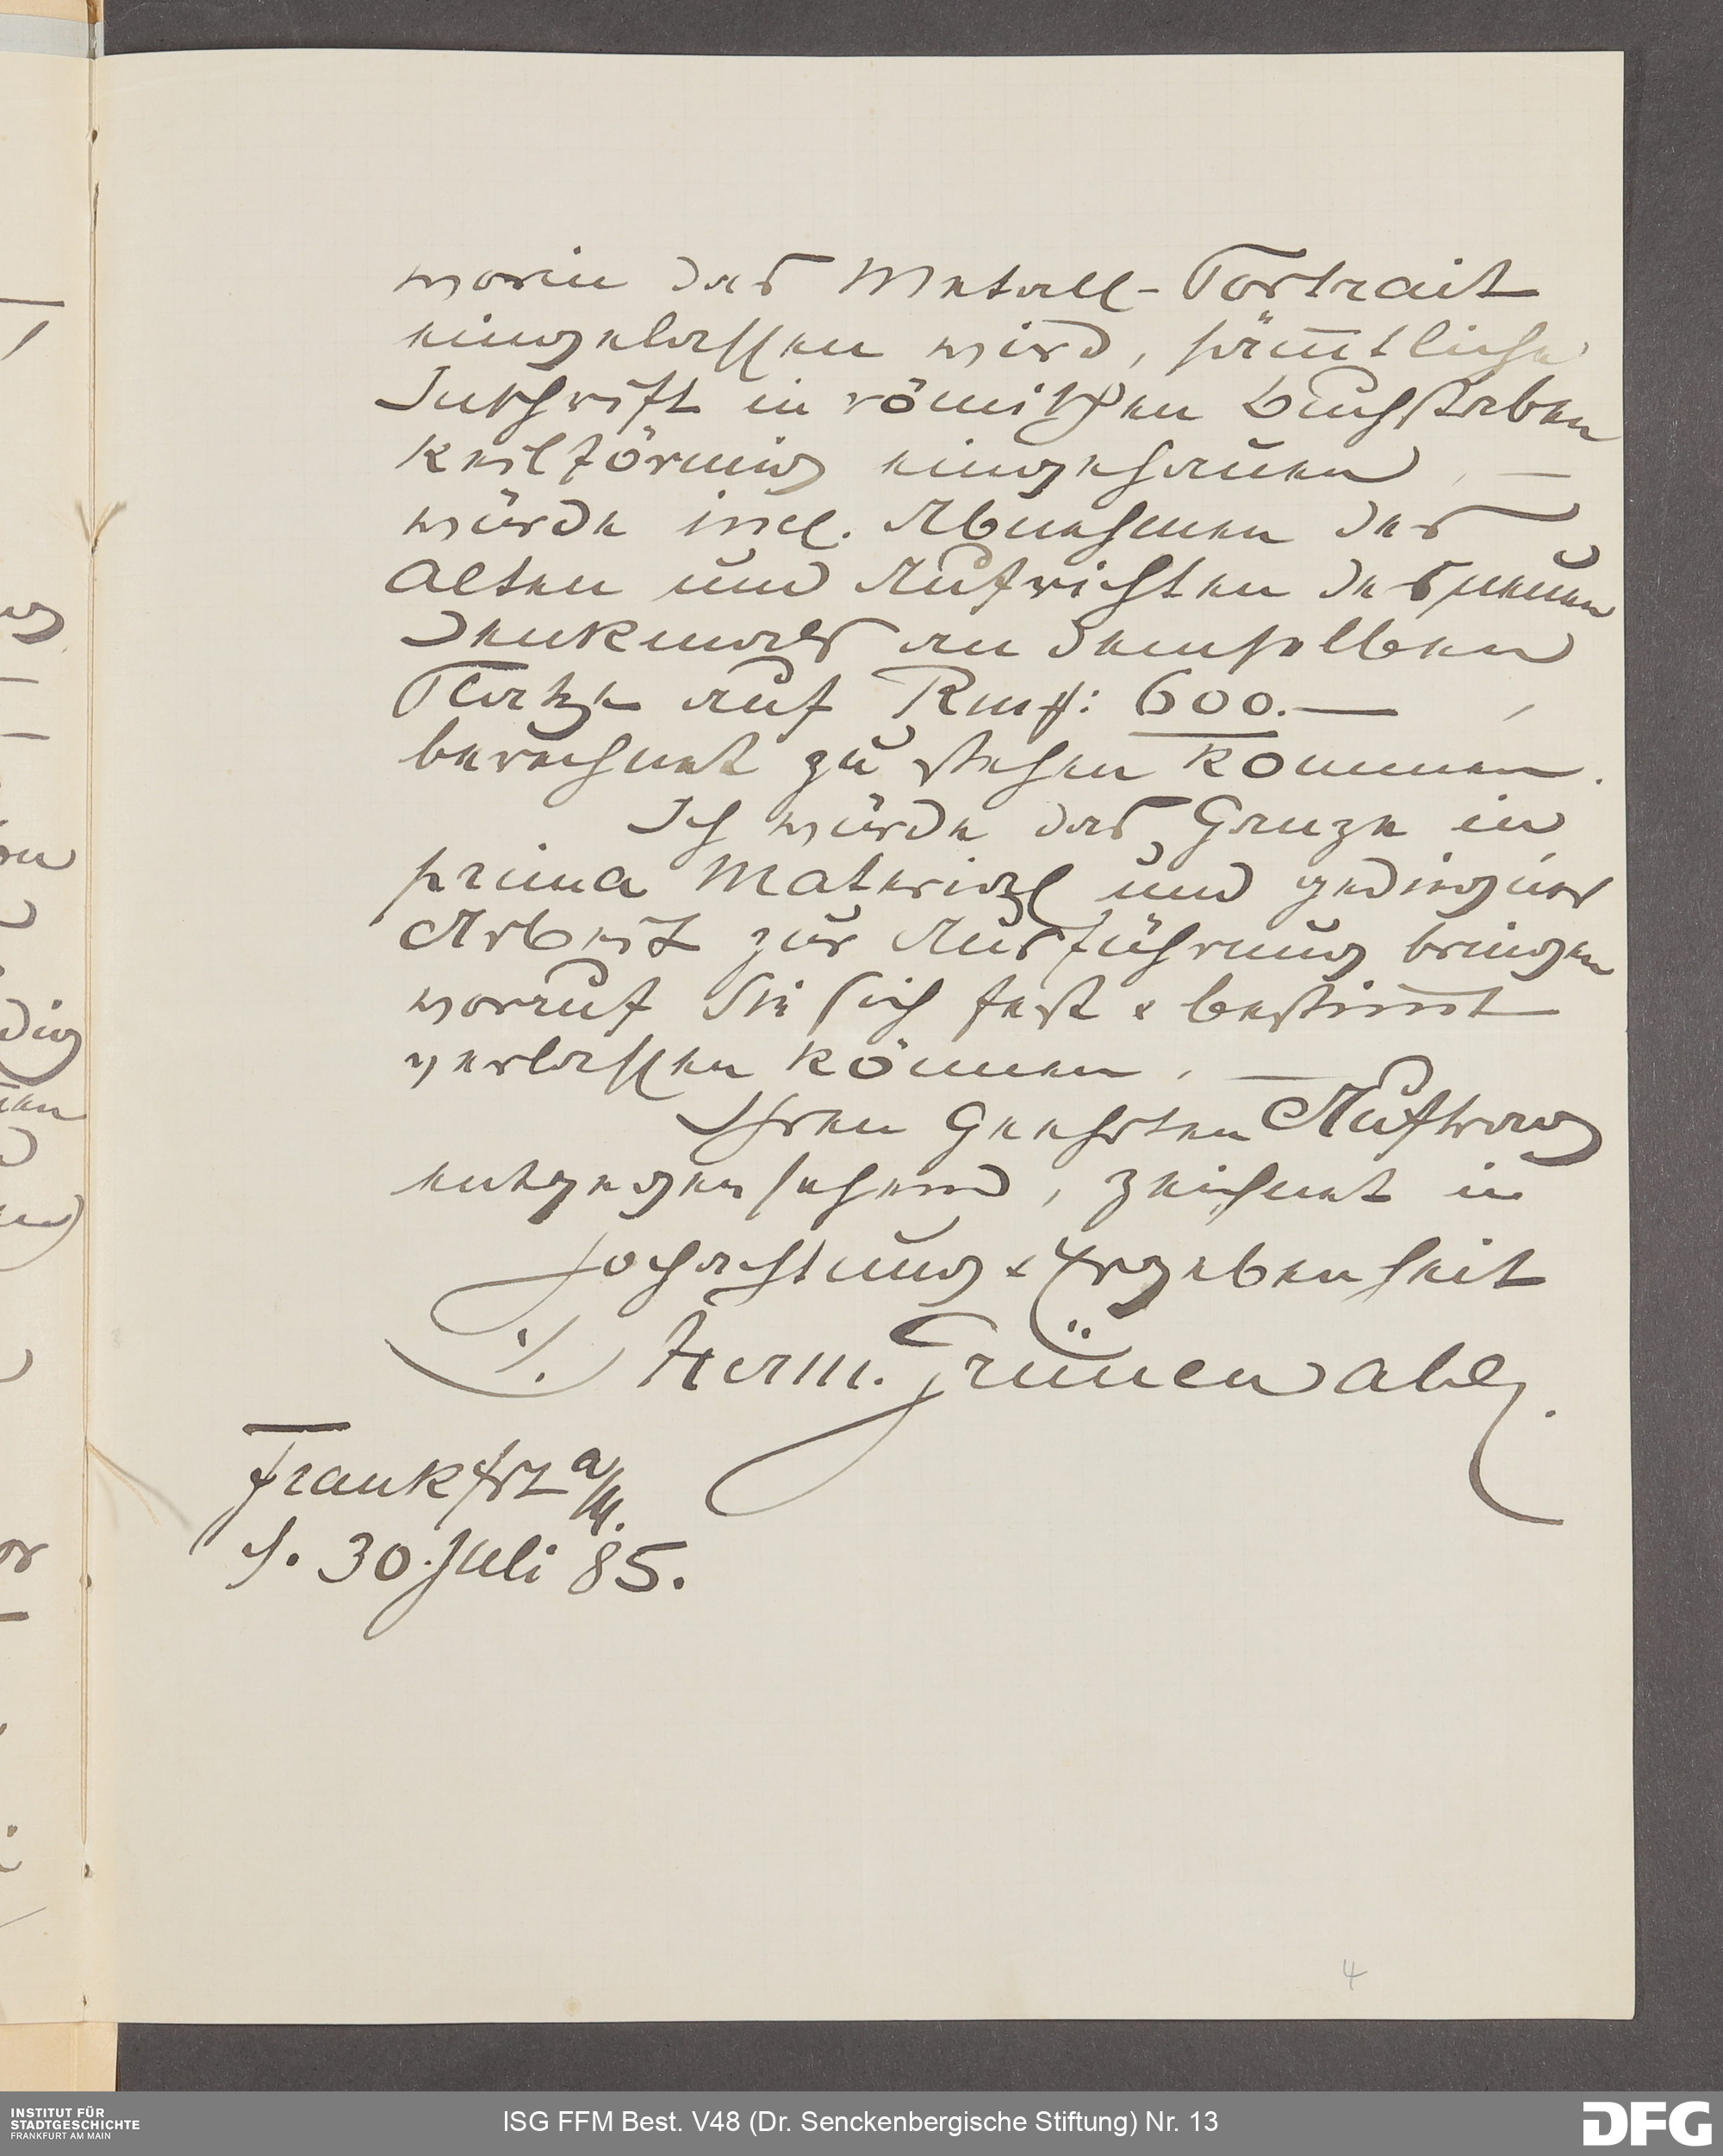 worin das Metall-Portrait
eingelassen wird, säm̅tliche
Inschrift in römischen Buchstaben
keilförmig eingehauen, —
würde incl. Abnehmen des
alten und Aufrichten des neuen
Denkmals an demselben
Platze auf Rm 600.—
berechnet zu stehen kommen.
Ich würde das Ganze in
prima Material und gediegner
Arbeit zur Ausführung bringen
worauf Sie sich fest & bestim̅t
verlassen können. —
Ihren Geehrten Auftrag
entgegensehend, zeichnet in
Hochachtung & Ergebenheit
Herm. Grünewald.
Frankfrt a/M.
d. 30. Juli 85.
4
INSTITUT FÜR
STADTGESCHICHTE
FRANKFURT AM MAIN
ISG FFM Best. V48 (Dr. Senckenbergische Stiftung) Nr. 13
DFG